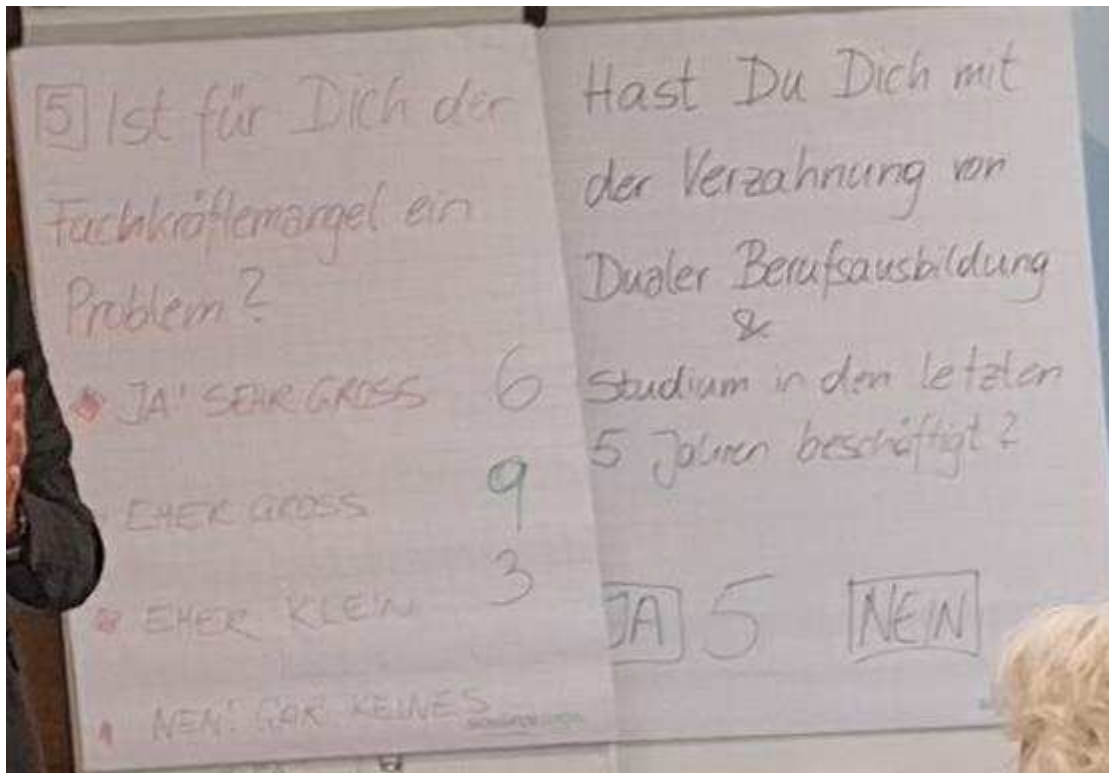 5 Ist für Dich der
Fachkräftemangel ein
Problem?
JA! SEHR GROSS 6
EHER GROSS 9
EHER KLEIN 3
NEIN! GAR KEINES
Hast Du Dich mit
der Verzahnung von
Dualer Berufsausbildung
&
Studium in den letzten
5 Jahren beschäftigt?
JA 5 NEIN